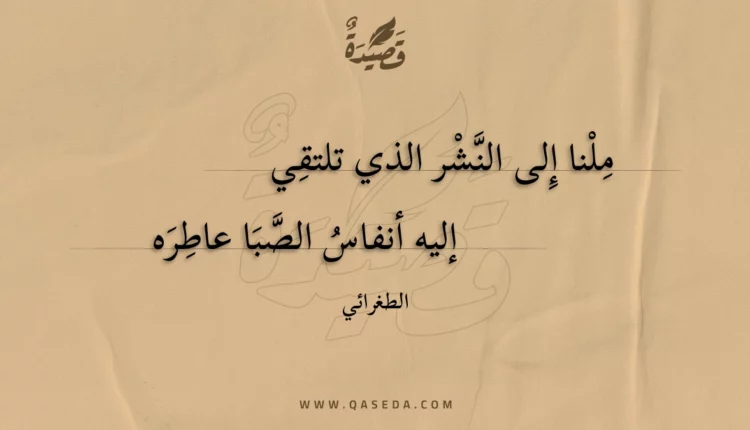 قَصِيْدَةٌ
مِلْنا إِلى النَّشْر الذي تلتقِي
إليه أنفاسُ الصَّبَا عاطِرَه
الطغرائي
WWW.QASEDA.COM